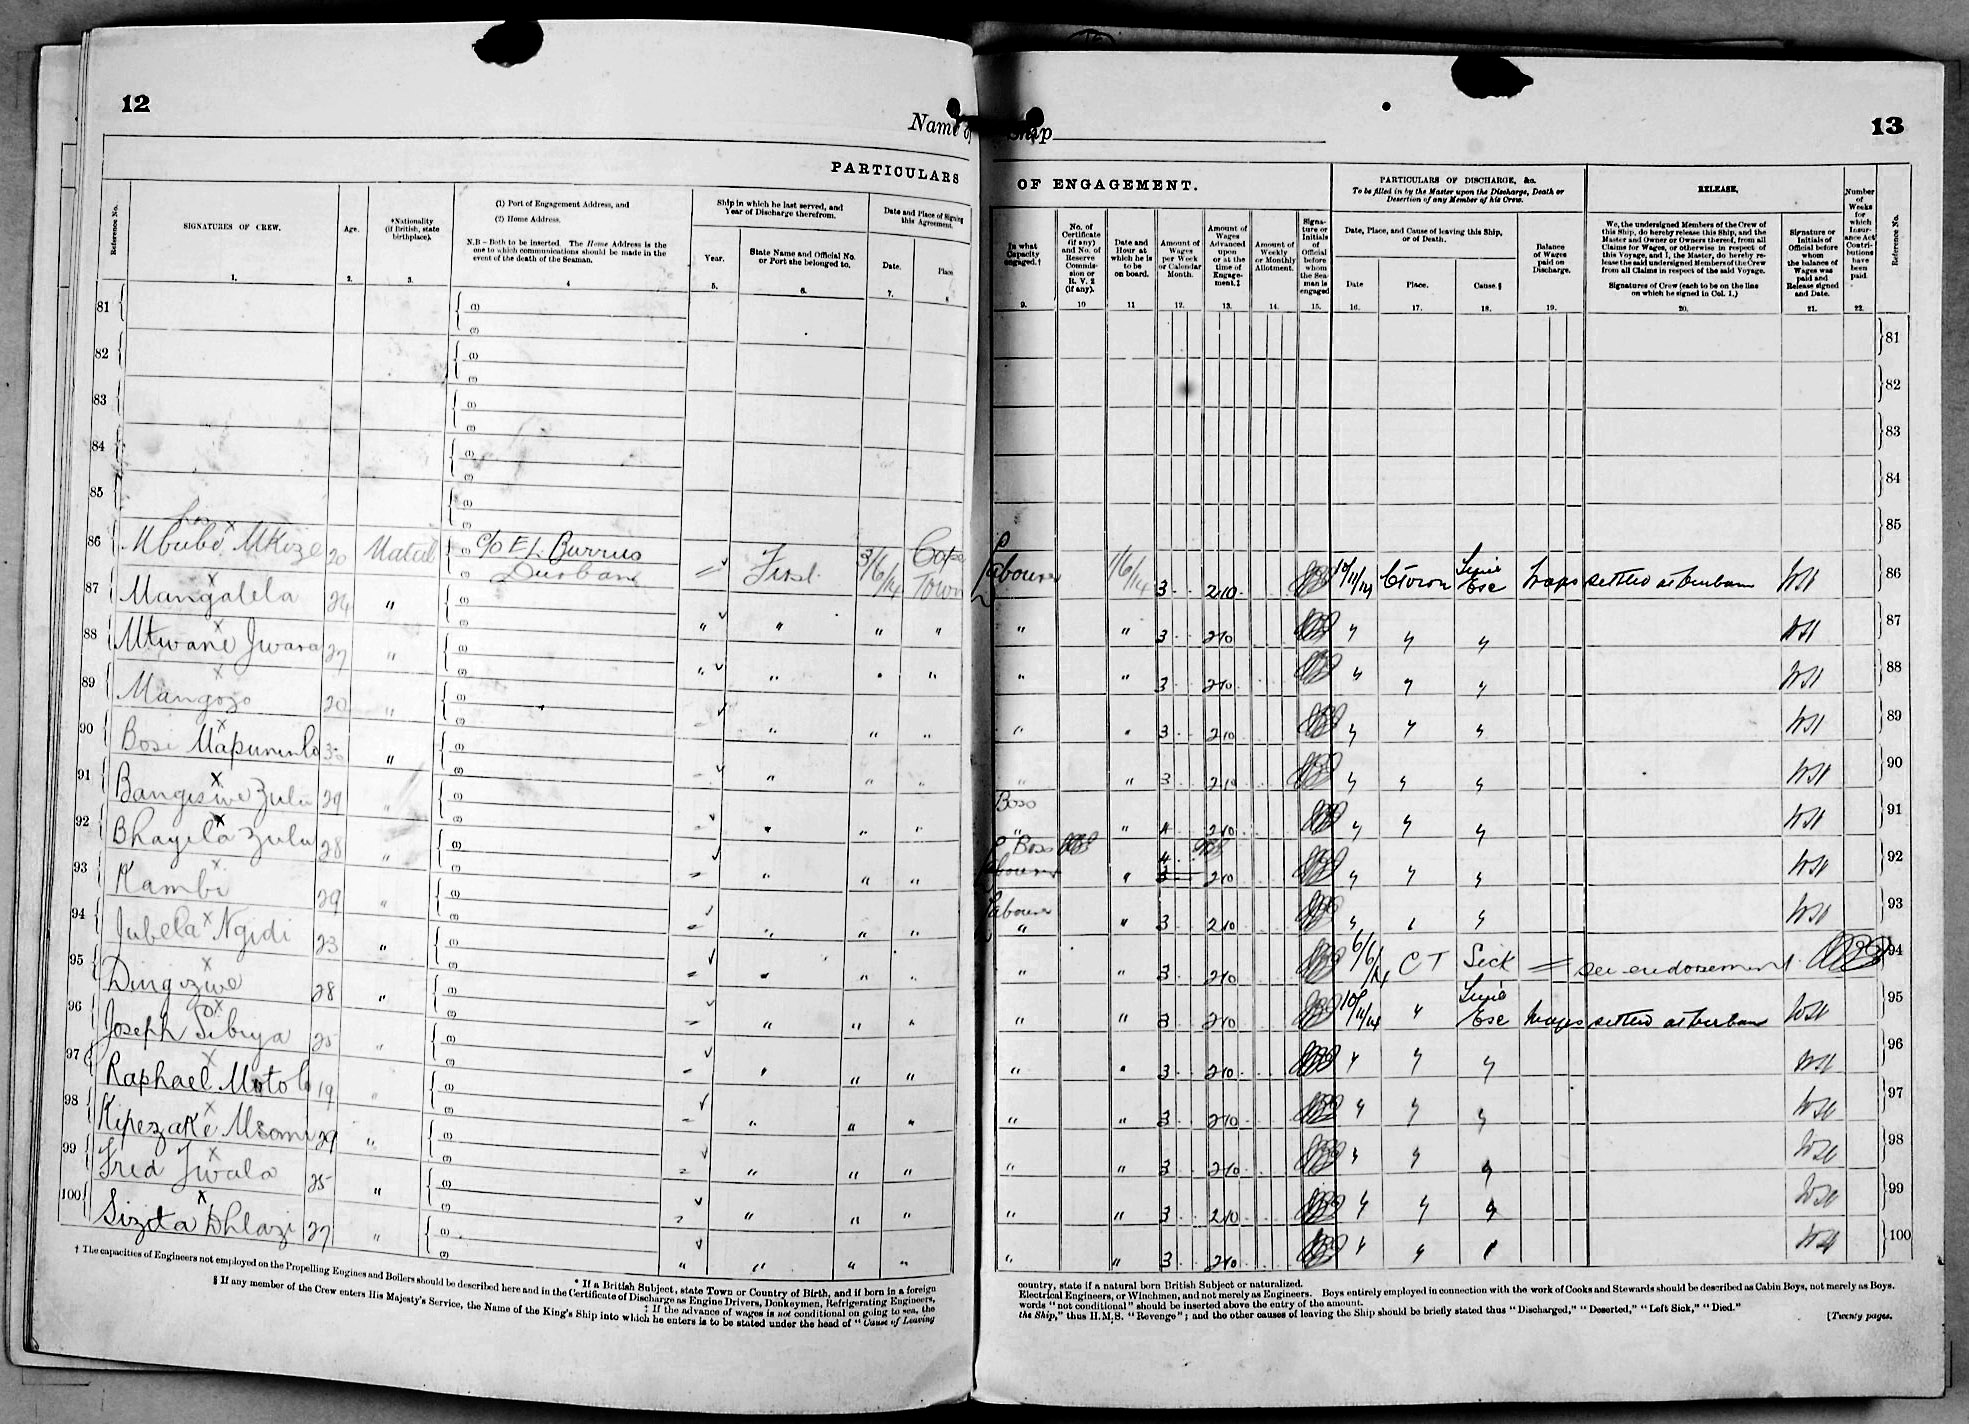 12
Name of Ship
13
PARTICULARS OF ENGAGEMENT.
PARTICULARS OF DISCHARGE, &c.
To be filled in by the Master upon the Discharge, Death or Desertion of any Member of his Crew.
RELEASE.
Reference No.
SIGNATURES OF CREW.
1.
Age.
2.
*Nationality (if British, state birthplace).
3.
(1) Port of Engagement Address, and
(2) Home Address.
N.B - Both to be inserted. The Home Address is the one to which communications should be made in the event of the death of the Seaman.
4
Ship in which he last served, and Year of Discharge therefrom.
Year.
5.
State Name and Official No. or Port she belonged to.
6.
Date and Place of Signing this Agreement.
Date.
7.
Place
8.
In what Capacity engaged.†
9.
No. of Certificate (if any) and No. of Reserve Commission or R. V. 2 (if any).
10
Date and Hour at which he is to be on board.
11
Amount of Wages per Week or Calendar Month.
12.
Amount of Wages Advanced upon or at the time of Engagement.‡
13.
Amount of Weekly or Monthly Allotment.
14.
Signature or Initials of Official before whom the Seaman is engaged
15.
Date, Place, and Cause of leaving this Ship, or of Death.
Date
16.
Place.
17.
Cause.§
18.
Balance of Wages paid on Discharge.
19.
We, the undersigned Members of the Crew of this Ship, do hereby release this Ship, and the Master and Owner or Owners thereof, from all Claims for Wages, or otherwise in respect of this Voyage, and I, the Master, do hereby release the said undersigned Members of the Crew from all Claims in respect of the said Voyage.
Signatures of Crew (each to be on the line on which he signed in Col. 1.)
20.
Signature or Initials of Official before whom the balance of Wages was paid and Release signed and Date.
21.
Number of Weeks for which Insurance Act Contributions have been paid.
22.
Reference No.
81 (1) (2) 81
82 (1) (2) 82
83 (1) (2) 83
84 (1) (2) 84
85 (1) (2) 85
86 Mbubo x Mkize 20 Natal c/o E L Burrus Durban First 3/6/14 Cape Town Labourer 1/6/14 3 2 10 10/11/14 Ctown Wages settled at Durban WSH 86
87 Mangalela x 24 " " " " " " " 3 2 10 WSH 87
88 Mtwane x Jwara 27 " " " " " " " 3 2 10 WSH 88
89 Mangozo x 20 " " " " " " 3 2 10 WSH 89
90 Bosi x Mapumulo 30 " " " " " " 3 2 10 WSH 90
91 Bangiswe x Zulu 29 " " " " Boso " " 4 2 10 WSH 91
92 Bhayela x Zulu 28 " " " " Boss " 4 3 2 10 WSH 92
93 Kambi x 29 " " " " Labourer " " 3 2 10 WSH 93
94 Jubela x Ngidi 23 " " " " " " 3 2 10 6/6/14 C T Sick see endorsement 94
95 Dingizwe x 28 " " " " " " 3 2 10 10/11/14 " Wages settled at Durban WSH 95
96 Joseph x Sibiya 25 " " " " " " 3 2 10 WSH 96
97 Raphael x Motolo 19 " " " " " " 3 2 10 WSH 97
98 Kipezake x Msomi 29 " " " " " " 3 2 10 WSH 98
99 Fred x Jwala 25 " " " " " " 3 2 10 WSH 99
100 Sizeta x Dhlazi 27 " " " " " " 3 2 10 WSH 100
* If a British Subject, state Town or Country of Birth, and if born in a foreign country, state if a natural born British Subject or naturalized.
† The capacities of Engineers not employed on the Propelling Engines and Boilers should be described here and in the Certificate of Discharge as Engine Drivers, Donkeymen, Refrigerating Engineers, Electrical Engineers, or Winchmen, and not merely as Engineers. Boys entirely employed in connection with the work of Cooks and Stewards should be described as Cabin Boys, not merely as Boys.
‡ If the advance of wages is not conditional on going to sea, the words "not conditional" should be inserted above the entry of the amount.
§ If any member of the Crew enters His Majesty's Service, the Name of the King's Ship into which he enters is to be stated under the head of "Cause of Leaving the Ship," thus H.M.S. "Revenge"; and the other causes of leaving the Ship should be briefly stated thus "Discharged," "Deserted," "Left Sick," "Died."
[Twenty pages.